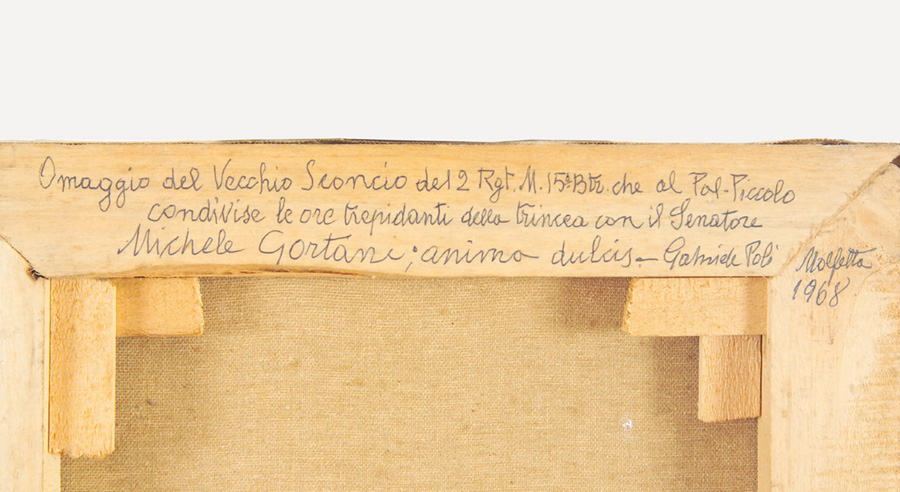 Omaggio del Vecchio Sconcio del 2 Rgt. M. 15ª Btr. che al Pal-Piccolo
condivise le ore trepidanti della trincea con il Senatore
Michele Gortani; anima dulcis - Gabriele Poli
Molfetta
1968